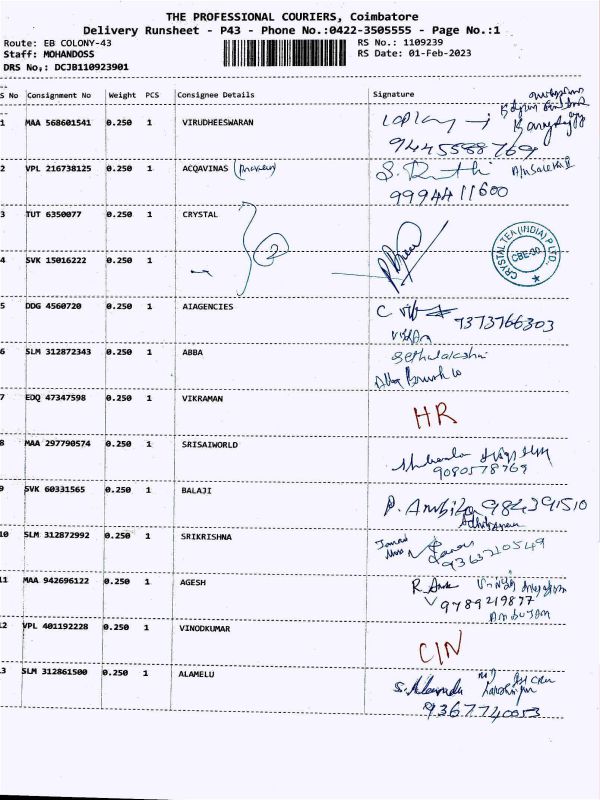 THE PROFESSIONAL COURIERS, Coimbatore
Delivery Runsheet - P43 - Phone No.:0422-3505555 - Page No.:1
Route: EB COLONY-43 RS No.: 1109239
Staff: MOHANDOSS RS Date: 01-Feb-2023
DRS No.: DCJB110923901
S No Consignment No Weight PCS Consignee Details Signature
1 MAA 568601541 0.250 1 VIRUDHEESWARAN
2 VPL 216738125 0.250 1 ACQAVINAS
9994411600
3 TUT 6350077 0.250 1 CRYSTAL
2
CRYSTAL TEA (INDIA) P LTD.
4 SVK 15016222 0.250 1
5 DDG 4560720 0.250 1 AIAGENCIES
7373766303
6 SLM 312872343 0.250 1 ABBA
7 EDQ 47347598 0.250 1 VIKRAMAN
HR
8 MAA 297790574 0.250 1 SRISAIWORLD
9080578769
9 SVK 60331565 0.250 1 BALAJI
P. Ambika
10 SLM 312872992 0.250 1 SRIKRISHNA
9363710549
11 MAA 942696122 0.250 1 AGESH
9789219877
12 VPL 401192228 0.250 1 VINODKUMAR
CIN
13 SLM 312861500 0.250 1 ALAMELU
9367740053